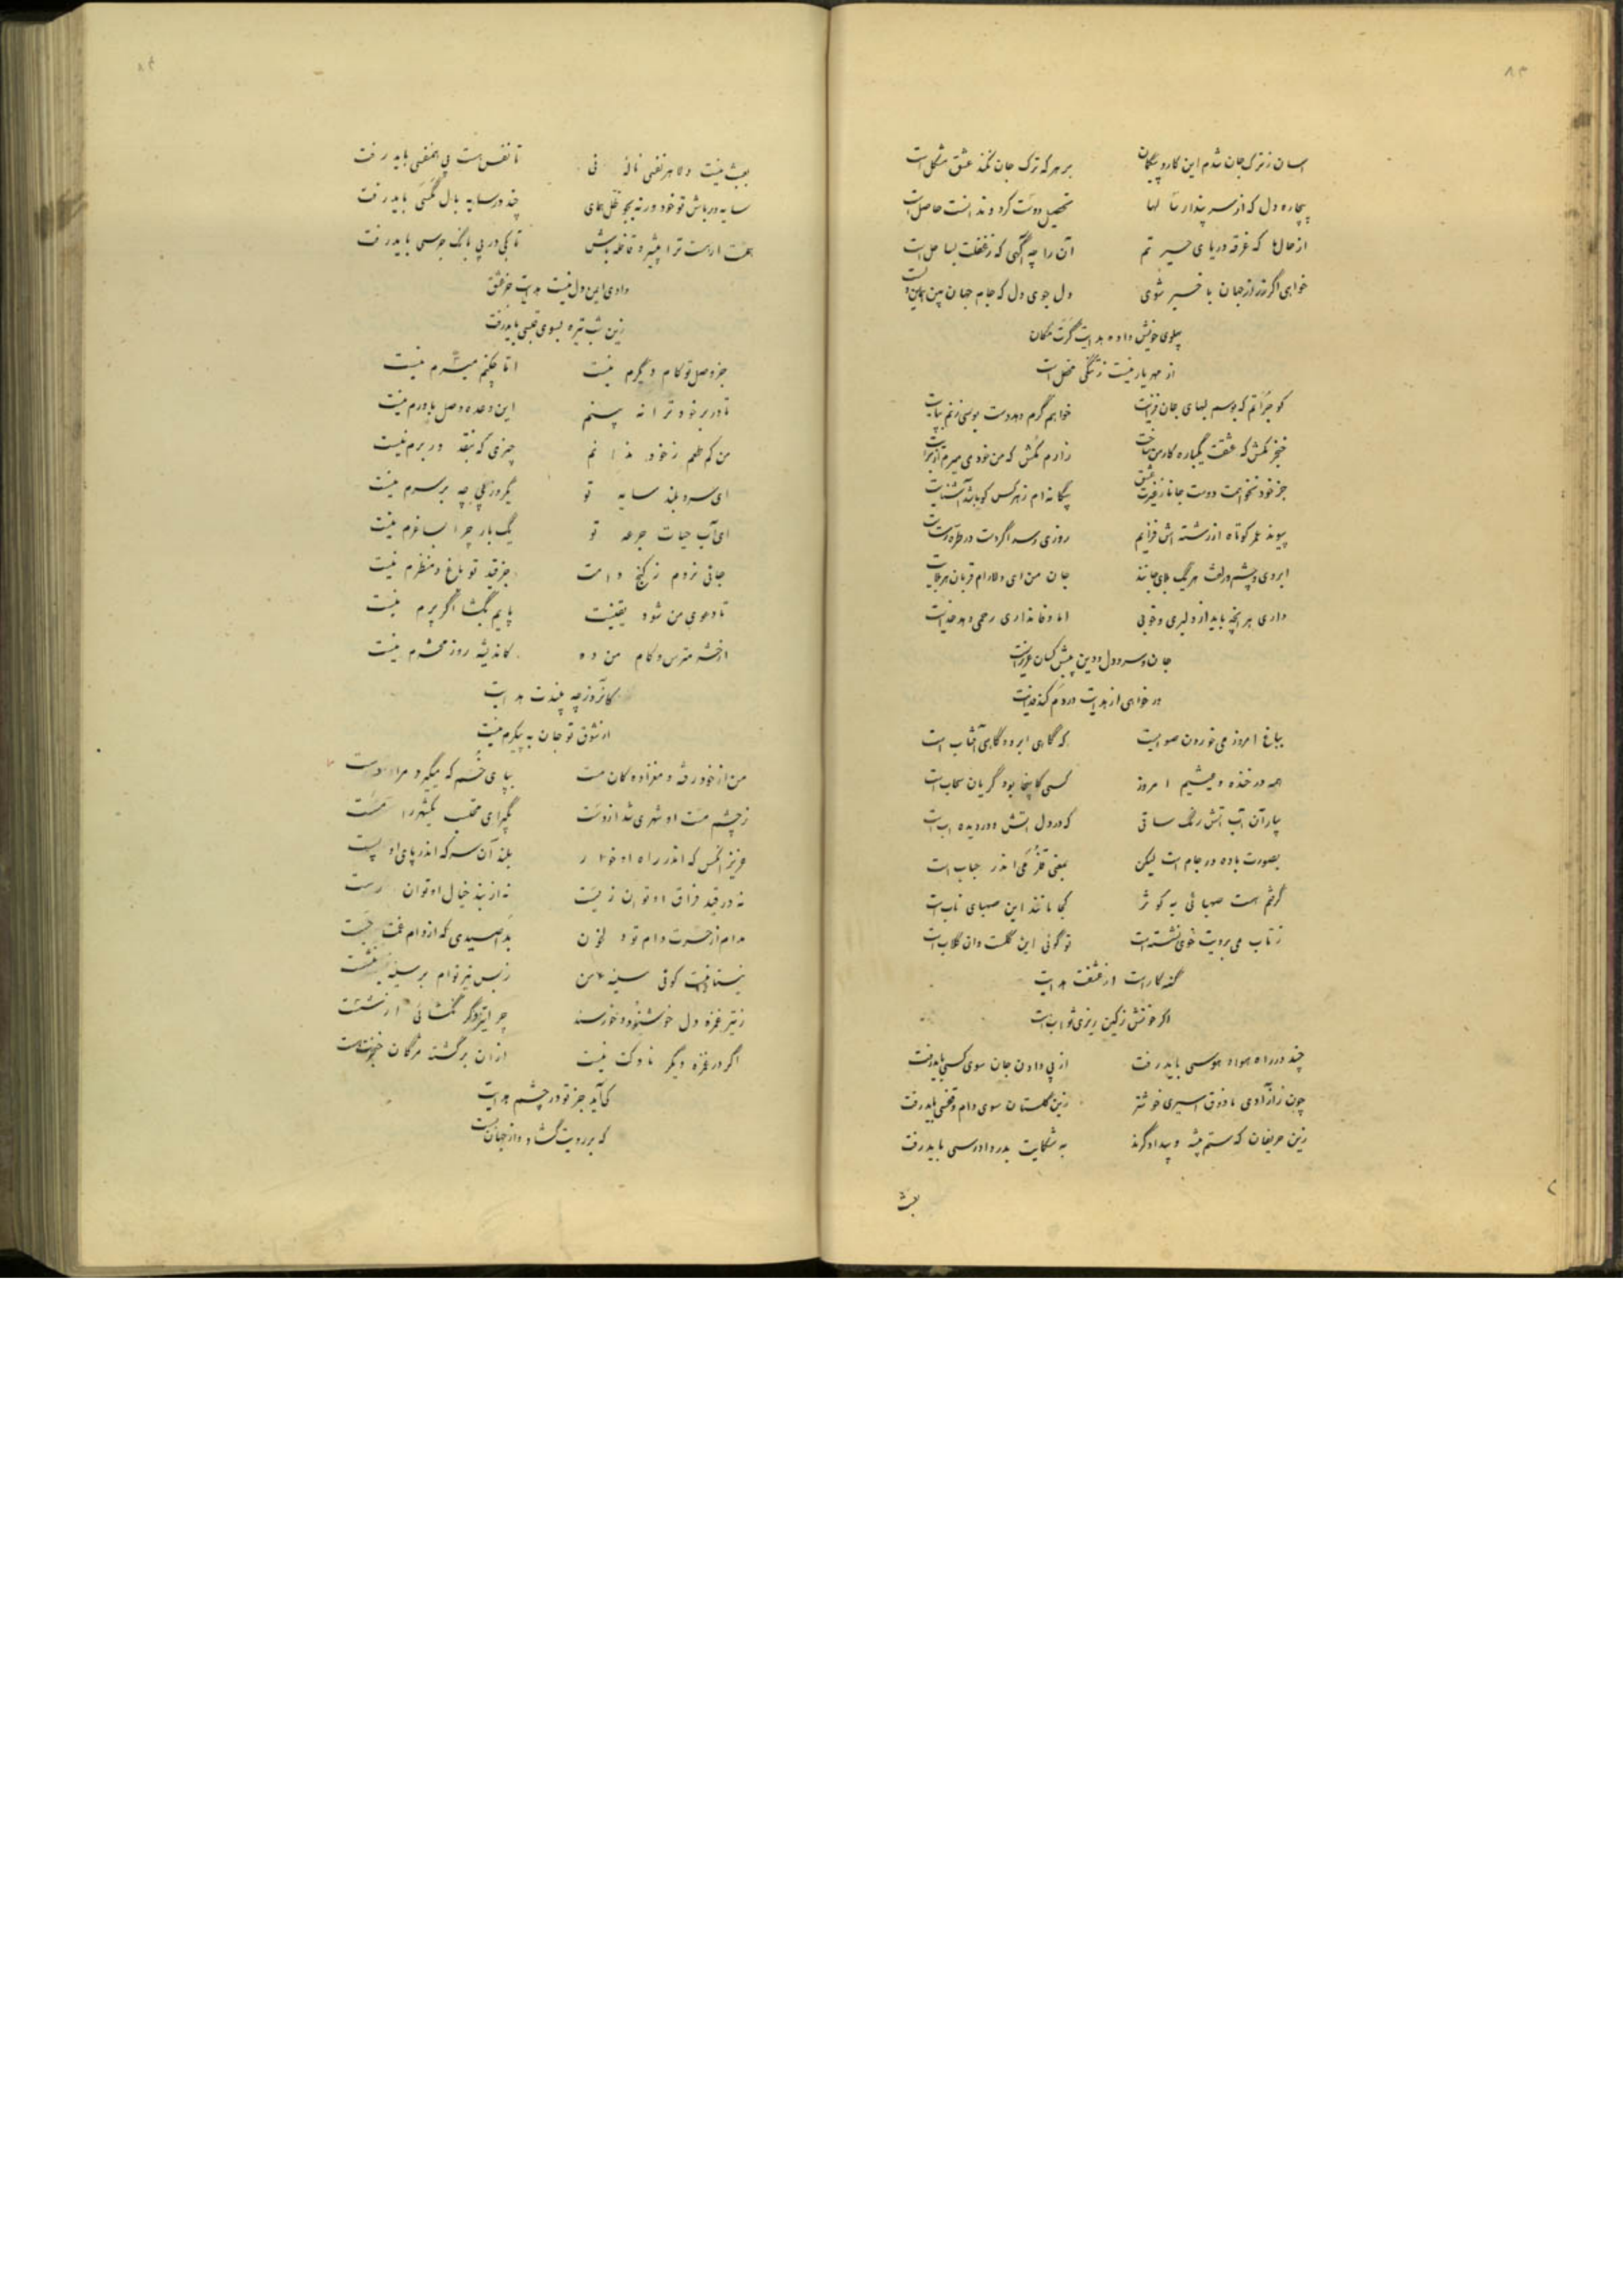 ۸۳
آسان ز ترک جان شدم این کار و بیگمان بر هر که ترک جان نکند عشق مشکل است
بیچاره دل که از سر پندار سالها تحصیل دوست کرد و ندانست حاصل است
از حال ما که غرقه دریای حیرتیم آن را چه آگهی که ز غفلت بساحل است
خواهی اگر ز راز جهان با خبر شوی دل جوی دل که جام جهان بین همین دلست
پهلوی خویش داد هدایت گرت مکان
از مهر یار نیست ز تنگی محفل است
کو جرأتم که بوسم لبهای جان فزایت خواهم گرم دهد دست بوسی زنم بپایت
خنجر مکش که عشقت یکباره کار من ساخت زارم مکش که من خود می میرم از برایت
جز خود نخواهمت دوست جانا ز غیرت عشق بیگانه ام ز هر کس کو باشد آشنایت
پیوند عمر کوتاه از رشته اش فزایم روزی رسد اگر دست در طره رسایت
ابروی و چشم و زلفت هر یک بلای جانند جان من ای دلارام قربان هر بلایت
داری هر آنچه باید از دلبری و خوبی اما وفا نداری رحمی دهد خدایت
جان و سر و دل و دین پیش کسان عزیز است
ور خواهی از هدایت در دم کند فدایت
بباغ امروز می خوردن صوابست که گاهی ابر و گاهی آفتاب است
همه در خنده و عیشیم امروز کسی کاینجا بود گریان سحاب است
بیار آن آب آتش رنگ ساقی که در دل آتش و در دیده آب است
بصورت باده در جام است لیکن بمعنی اندر حباب است
گرفتم هست صهبائی به کوثر کجا مانند این صهبای ناب است
ز تاب می برویت خوی نشسته است تو گوئی این گلست و آن گلاب است
گنه کار است از عشقت هدایت
اگر خونش ز کین ریزی ثواب است
چند در راه هوا و هوسی باید رفت از پی دادن جان سوی کسی باید رفت
چون ز آزادی ما ذوق اسیری خوشتر زین گلستان سوی دام و قفسی باید رفت
زین حریفان که ستم پیشه و بیدادگرند به شکایت بدر دادرسی باید رفت
بعبث
۸۴
بعبث نیست دلا هر نفسی ناله نی تا نفس هست پی همنفسی باید رفت
سایه ور باش تو خود ورنه بجو ظل همای چند در سایه بال مگسی باید رفت
همت ار هست ترا پیشرو قافله باش تا کی در پی بانگ جرسی باید رفت
وادی ایمن دل نیست هدایت جز عشق
زین شب تیره بسوی قبسی باید رفت
جز وصل تو کام دیگرم نیست اما چکنم میسرم نیست
تا در بر خود ترا نه بینم این وعده وصل باورم نیست
من کم طمعم ز خود مرانم چیزی که بنقد در برم نیست
ای سرو بلند سایه تو یکروز پی چه بر سرم نیست
ای آب حیات جرعه تو یک بار چرا بساغرم نیست
جائی نروم ز کنج دامت جز قد تو باغ و منظرم نیست
تا دعوی من شود یقینت پایم بگشا اگر پرم نیست
از حشر مترس و کام من ده کاندیشه روز محشرم نیست
کانروز چه بیندت هدایت
از شوق تو جان به پیکرم نیست
من از خود رفته و میزاده کان مست بپای خم که میگیرد مرا دست
ز چشم مست او شهری شد از دست بگیر ای محتسب یکشهر را مست
عزیز آنکس که اندر راه او خوار بلند آن سر که اندر پای او پست
نه در قید فراق او توان زیست نه از بند خیال او توان رست
مدام از حسرت دام تو در خون بد آن صیدی که از دام غمت جست
نیستانیست گوئی سینه من ز بس تیر توام بر سینه بنشست
ز تیر غمزه دل خوشنود و خورسند چرا تیر دگر نگشائی از شست
اگر در غمزه دیگر ناوکت نیست از آن برگشته مژگان خود هست
که آید جز تو در چشم هدایت
که بر رویت گشاد و از جهان بست